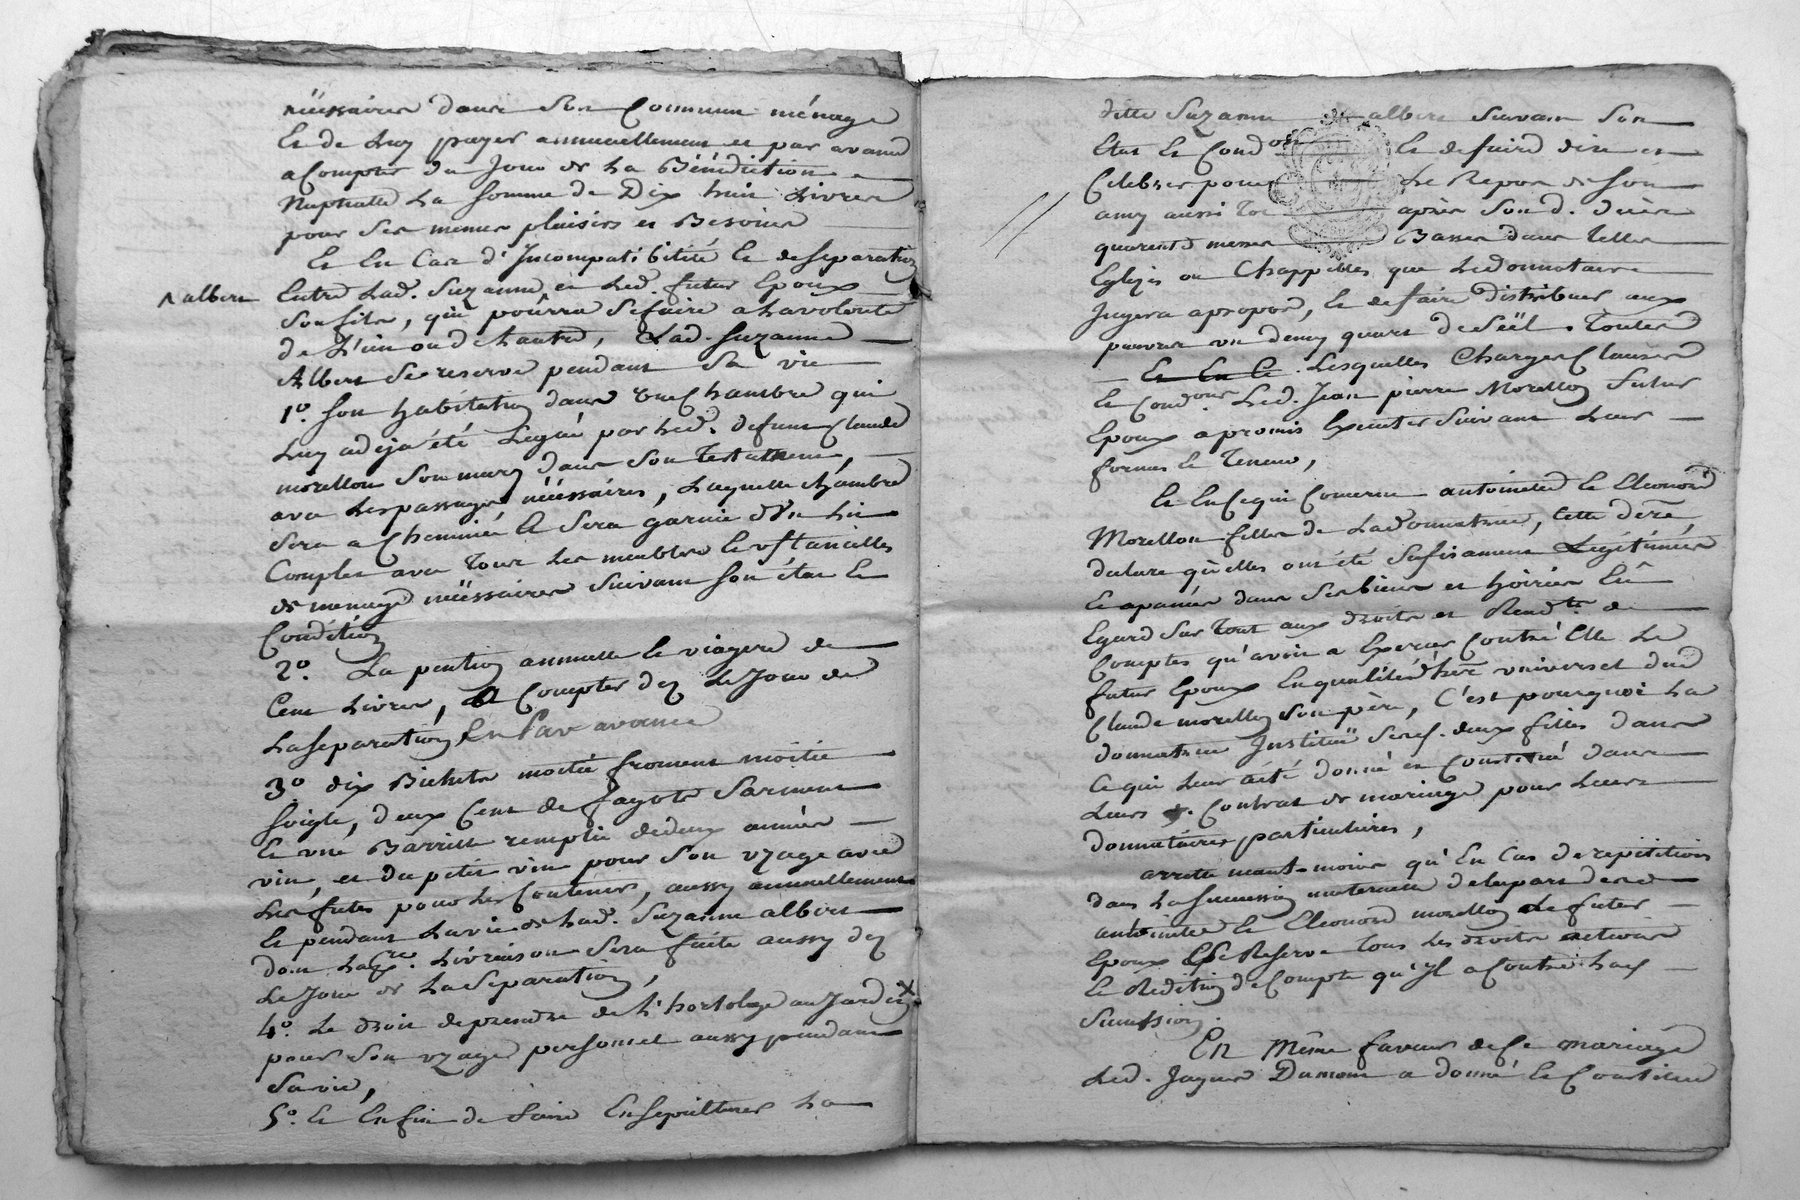 nécessaires dans son Commun ménage
Et de Luy payer annuellement et par avance
a Compter du Jour de La Bénédiction
Nuptialle La somme de Dix huit Livres
pour ses menus plaisirs et Besoins
Et En Cas d'Incompatibilité Et de separation
Entre Lad. Suzanne et Led. futur Epoux
albert
son fils, qui pourra se faire a La volonté
de L'un ou de Lautre, Lad. Suzanne
Albert se reserve pendant Sa vie
1º. Son habitation dans une Chambre qui
Luy a déja été Leguée par Led. defunt Claude
morellon Son mary dans Son Testament,
avec Les passages nécéssaires, Laquelle Chambre
Sera a Cheminée Et Sera garnie d'un Lit
Complet avec Tous Les meubles Et ustancilles
de menage nécéssaires Suivant Son état Et
Condition
2º. La pention annuelle Et viagere de
Cent Livres, a Compter dez Le Jour de
La separation, En Par avance
3º dix Bichets moitié froment moitié
Soigle, deux Cent de fagots Sarment
Et une Barrille remplie de deux années
vin, et du petit vin pour Son uzage avec
Les futes pour Les Contenir, aussy annuellement
Et pendant La vie de Lad. Suzanne albert
dont La Livraison Sera faite aussy dez
Le Jour de La Separation,
4º. Le droit de prendre de L'hortolage au Jardin
pour Son uzage personnel aussy pendant
Sa vie,
5º. Et Enfin de faire Ensepulturer La
ditte Suzanne albert Suivant Son
Etat Et Condon Et de faire dire et
Celebrer pour Le Repos de Son
ame aussi Tot après Son d. décès
quarente messes Basses dans Telles
Eglises ou Chappelles que Le donnataire
Jugera apropos, Et de faire distribuer aux
pauvres un demy quart de Séël. Toutes
Et En C Lesquelles Charges Clauses
Et Condons. Led. Jean pierre Morellon futur
Epoux a promis Executer Suivant Leur
forme Et Teneur,
Et En Ce qui Concerne antoinette Et Eleonord
Morellon filles de La donnatrice, Cette dere,
declare qu'elles ont été Sufisament Légitimées
Et apanées dans Ses biens et hoiries Eû
Egard Sur Tout aux droits et Redd.tn de
Comptes qu'avoit a Exercer Contre Elle Le
futur Epoux En qualité d'here universel dud
Claude morellon Son père, C'est pourquoi La
donnatrice Institüe Sesd. deux filles dans
Ce qui Leur a été donné et Constitué dans
Leurs Contrat de mariage pour Leurs
donnataires particulieres,
arretté néant-moins qu'En Cas de repetitions
dans La Succession maternelle de La part desd
antoinette Et Eleonord morellon Le futur
Epoux Se Reserve Tous Les droits actions
Et Reddition de Compte qu'jl a Contre Lad
Succession.
En Même faveur de Ce mariage
Led. Jaques Dumont a donné Et Constitué